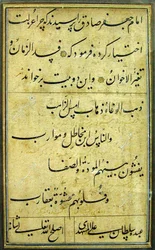 امام جعفر صادق را پرسیدند که چرا عزلت
اختیار کرده فرمود که فسد الزمان و
تغیر الاخوان و این دو بیت برخواند
ذهب الوفاء ذهاب امس الذاهب
والناس بین مخاتل و موارب
یفشون بینهم المودة و الصفا
و قلوبهم محشوة بعقارب